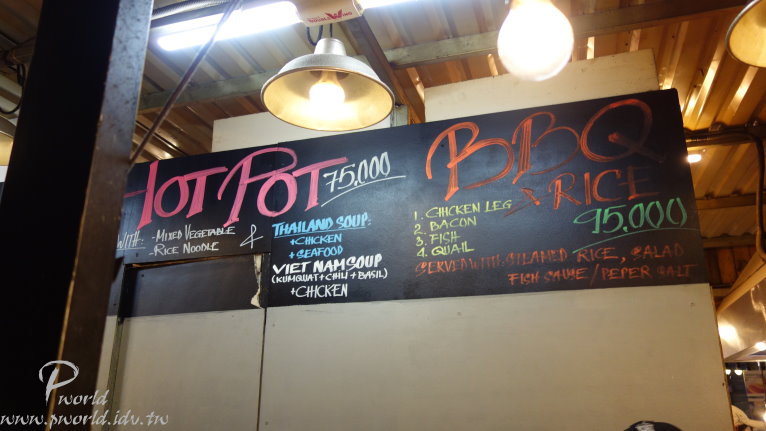 HOT POT 75,000
WITH: - MIXED VEGETABLE
- RICE NOODLE
&
THAILAND SOUP:
+ CHICKEN
+ SEAFOOD
VIET NAM SOUP
(KUMQUAT + CHILI + BASIL)
+ CHICKEN
BBQ
& RICE
1. CHICKEN LEG
2. BACON
3. FISH
4. QUAIL
95,000
SERVED WITH: STEAMED RICE, SALAD
FISH SAUCE / PEPER SALT
P world
www.pworld.idv.tw